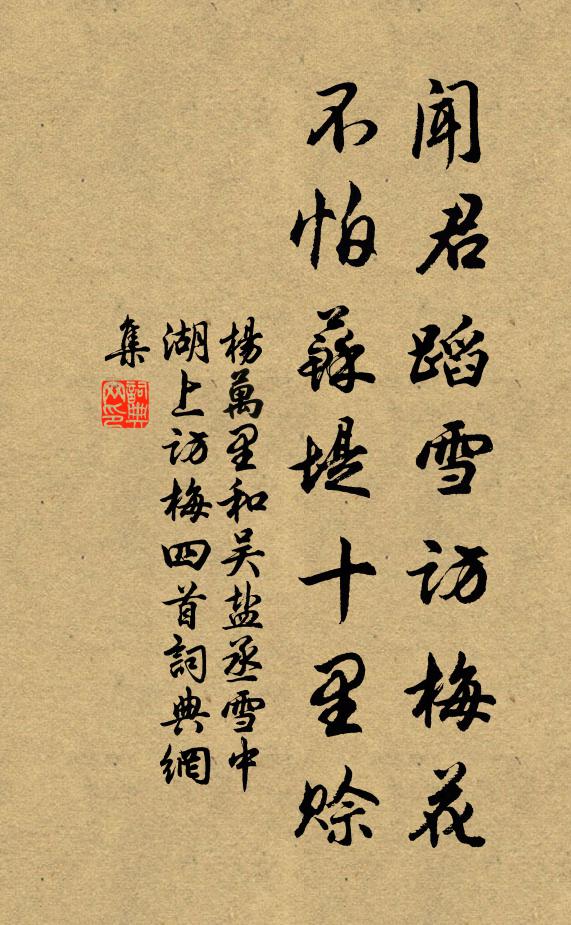 闻君蹈雪访梅花
不怕蘇堤十里賒
楊萬里和吴盐丞雪中
湖上访梅四首詞典網
集
詞典
网印